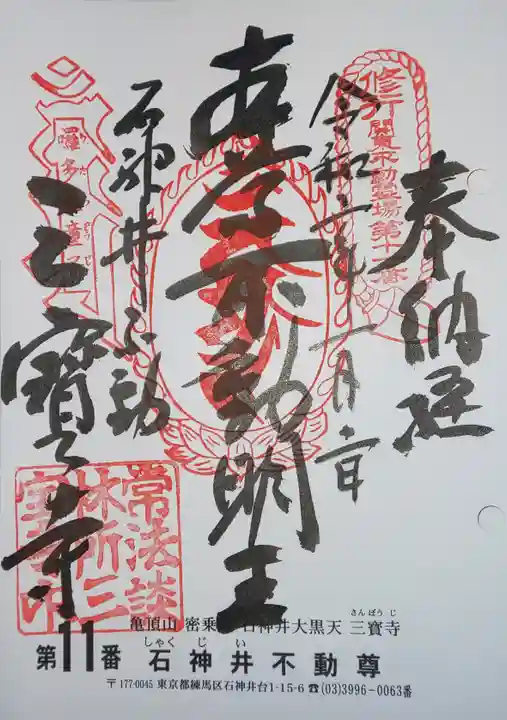 奉納経
修行 関東不動霊場第十一番
令和二年一月二日
本尊不動明王
石神井不動
三寶寺
羅多
常法談
林所三
亀頂山 密乗 石神井大黒天 三寶寺
さんぽうじ
しゃくじい
第11番 石神井不動尊
〒177-0045 東京都練馬区石神井台1-15-6 ☎(03)3996-0063番